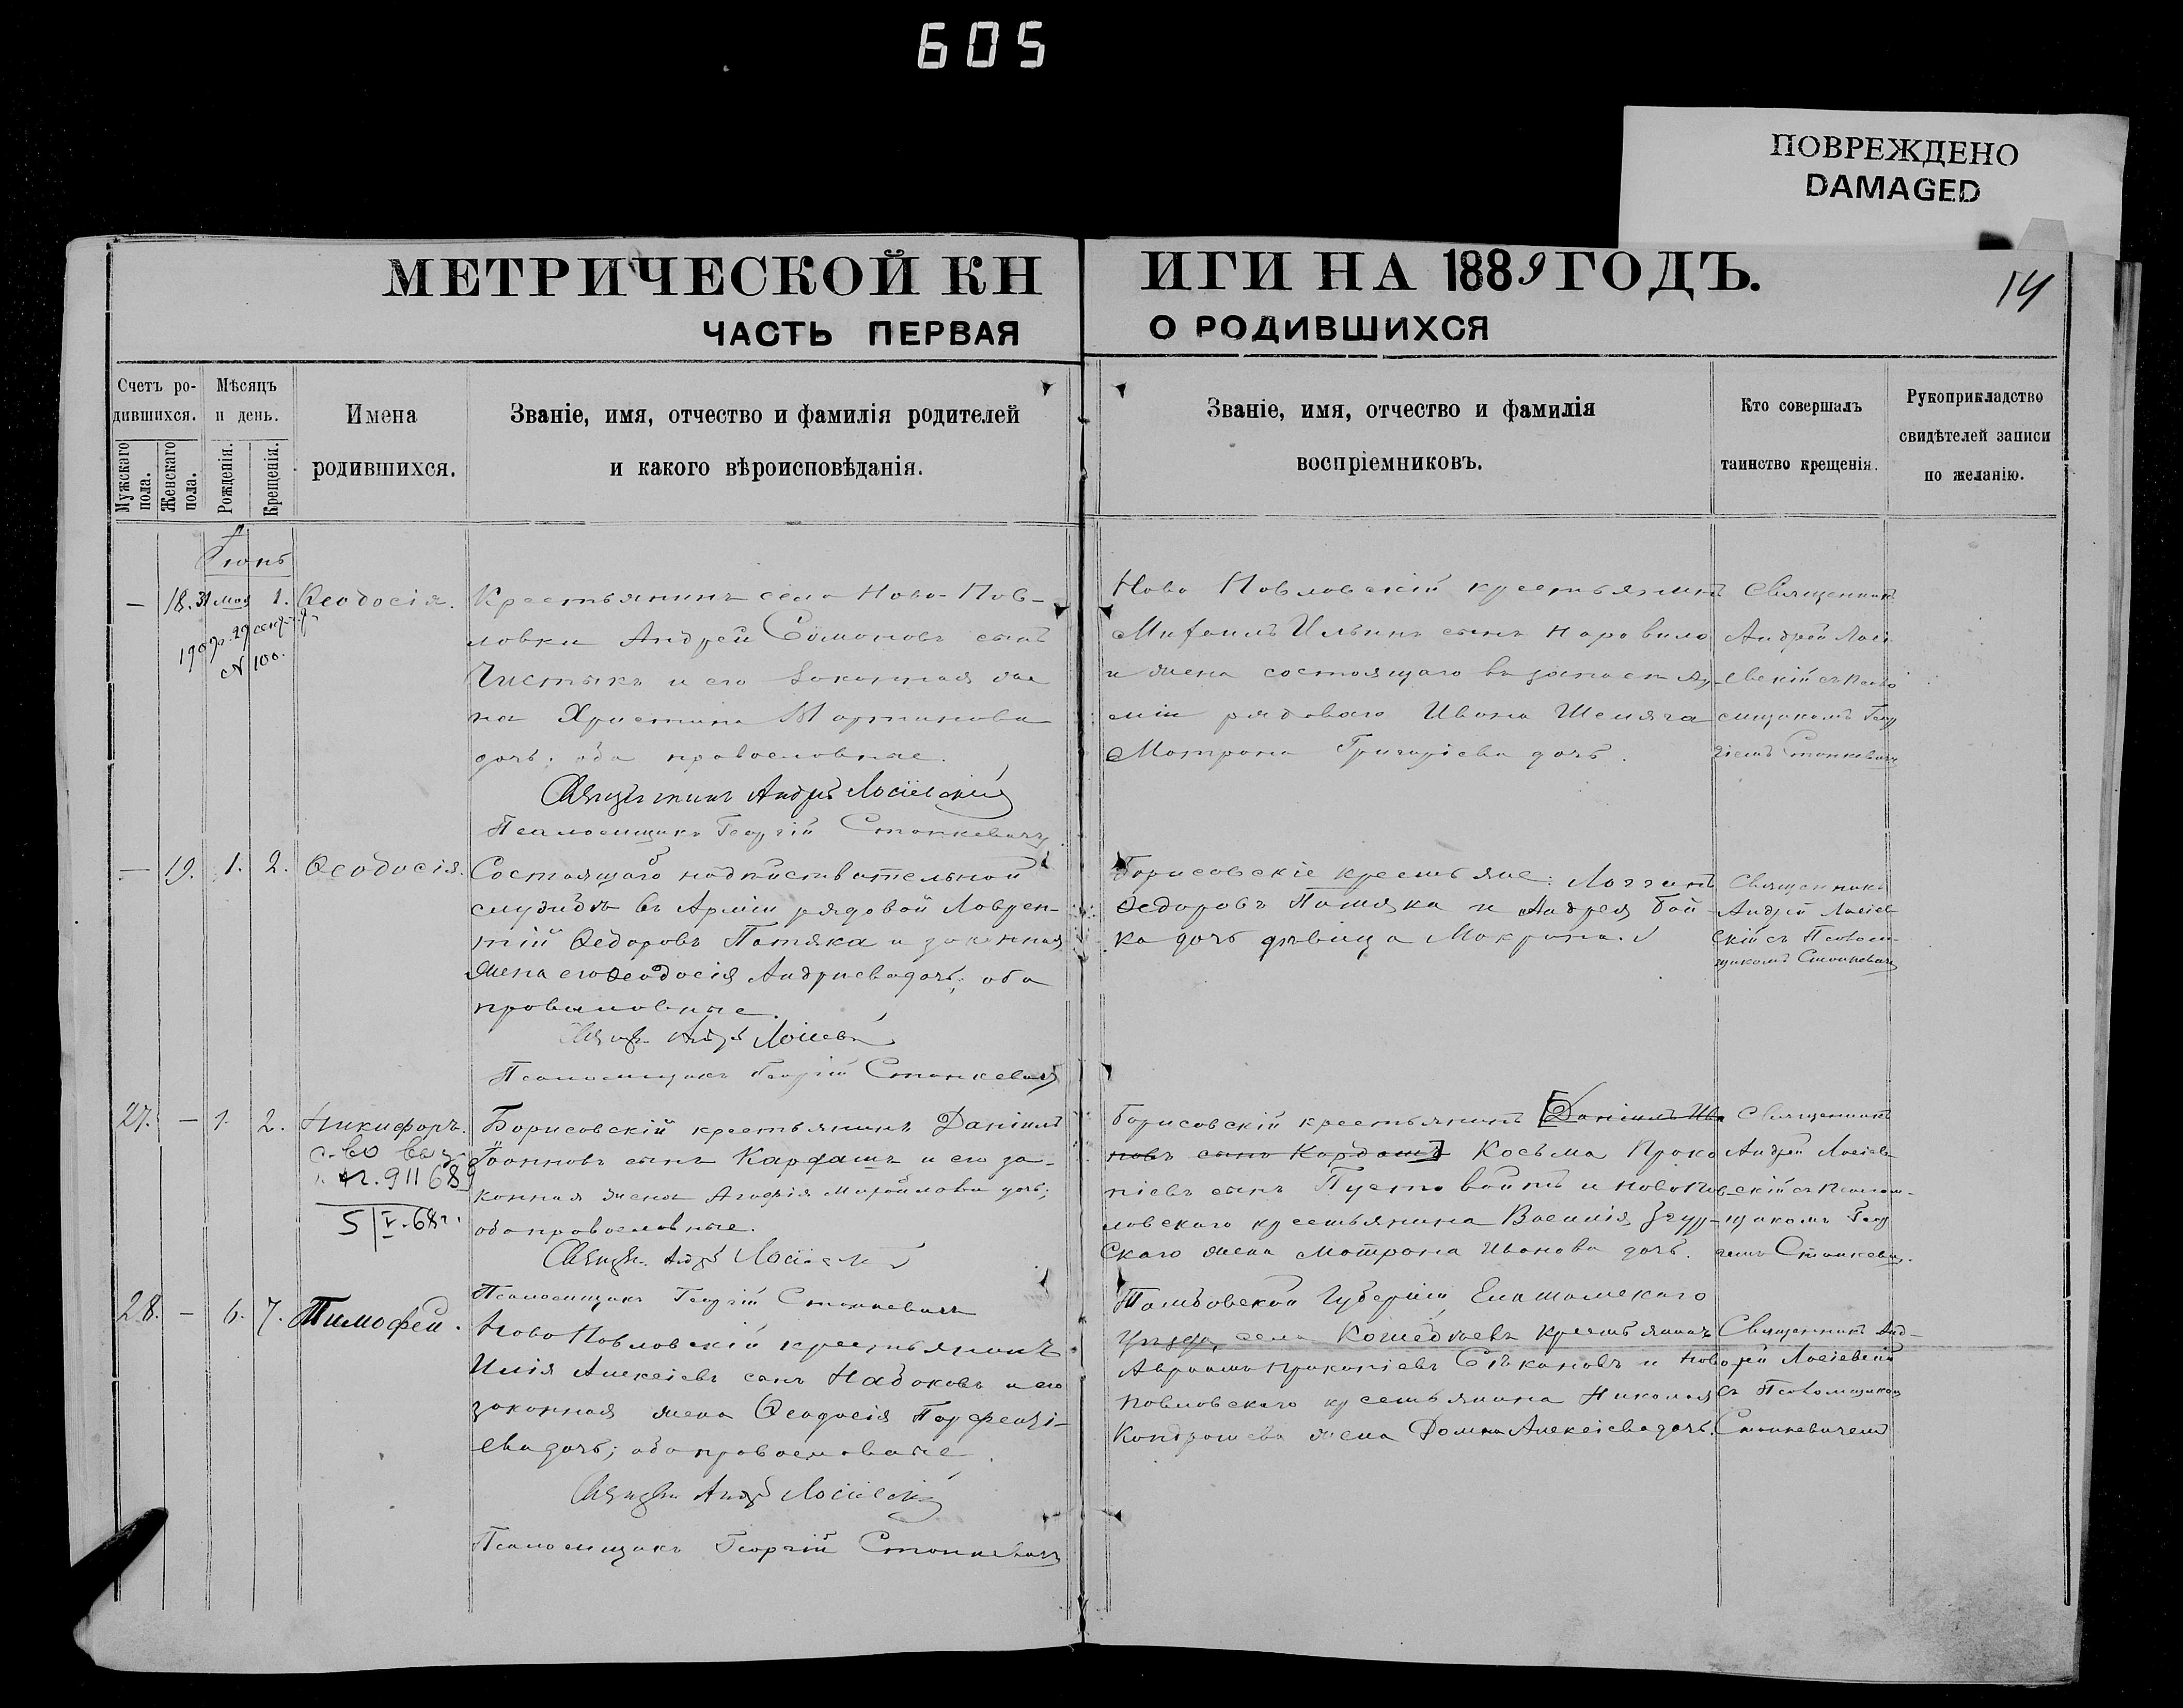 605
ПОВРЕЖДЕНО
DAMAGED
МЕТРИЧЕСКОЙ КНИГИ НА 1889 ГОДЪ.
14
ЧАСТЬ ПЕРВАЯ О РОДИВШИХСЯ
Счетъ ро-
дившихся.
Мужскаго пола.
Женскаго пола.
Мѣсяцъ
и день.
Рожденія.
Крещенія.
Имена
родившихся.
Званіе, имя, отчество и фамилія родителей
и какого вѣроисповѣданія.
Званіе, имя, отчество и фамилія
воспріемниковъ.
Кто совершалъ
таинство крещенія.
Рукоприкладство
свидѣтелей записи
по желанію.
Іюнь
— 18. 31 мая 1. Ѳеодосія.
№ 100.
Крестьянинъ села Ново-Пав-
ловки Андрей Симоновъ сынъ
Чистякъ и его законная же
на Христина Мартинова
дочь; оба православные.
Священникъ Андрей Лосіевскій
Псаломщикъ Георгій Станкевичъ
Ново Павловскій крестьянинъ
Михаилъ Ильинъ сынъ
и жена состоящаго въ запасѣ Ар-
міи рядоваго Ивана Шеляга
Матрона Григоріева дочь.
Священникъ
Андрей Лосі
евскій съ Псало
мщикомъ Геор
гіемъ Станкевичемъ
— 19. 1. 2. Ѳеодосія.
Состоящаго на дѣйствительной
службѣ въ Арміи рядовой Лаврен-
тій Ѳедоровъ Патяка и законная
жена его Ѳеодосія Андреева дочь; оба
православные.
Псаломщикъ Георгій Станкевичъ
Борисовскіе крестьяне: Логгинъ
Ѳедоровъ Патяка и Андрея Бой-
ка дочь дѣвица Макрина.
Священникъ
Андрей Лосіев
скій съ Псалом-
щикомъ Станкевичемъ
27. — 1. 2. Никифоръ.
с-во выд.
п. 911689
5/V-68г.
Борисовскій крестьянинъ Даніилъ
Іоанновъ сынъ Кардашъ и его за-
конная жена Агафія Михайлова дочь;
оба православные.
Псаломщикъ Георгій Станкевичъ
Борисовскій крестьянинъ [Даніилъ Ива
новъ сынъ Кардашъ] Косьма Проко
піевъ сынъ Пустовойтъ и новопав-
ловскаго крестьянина Василія Згур-
скаго жена Матрона Иванова дочь.
Священникъ
Андрей Лосіев
скій съ Псалом-
щикомъ Геор
гіемъ Станкевич.
28. — 6. 7. Тимофей.
Ново Павловскій крестьянинъ
Илія Алексіевъ сынъ Набоковъ и его
законная жена Ѳеодосія Парфенті-
ева дочь; оба православные.
Священ. Андрей Лосіевскій
Псаломщикъ Георгій Станкевичъ
Тамбовской Губерніи, Елатомскаго
уѣзда, села крестьянинъ
Авраамъ Прокопіевъ и ново
павловскаго крестьянина Николая
Кондрашева жена Домна Алексіева дочь.
Священникъ Анд-
рей Лосіевскій
съ Псаломщикомъ
Станкевичемъ